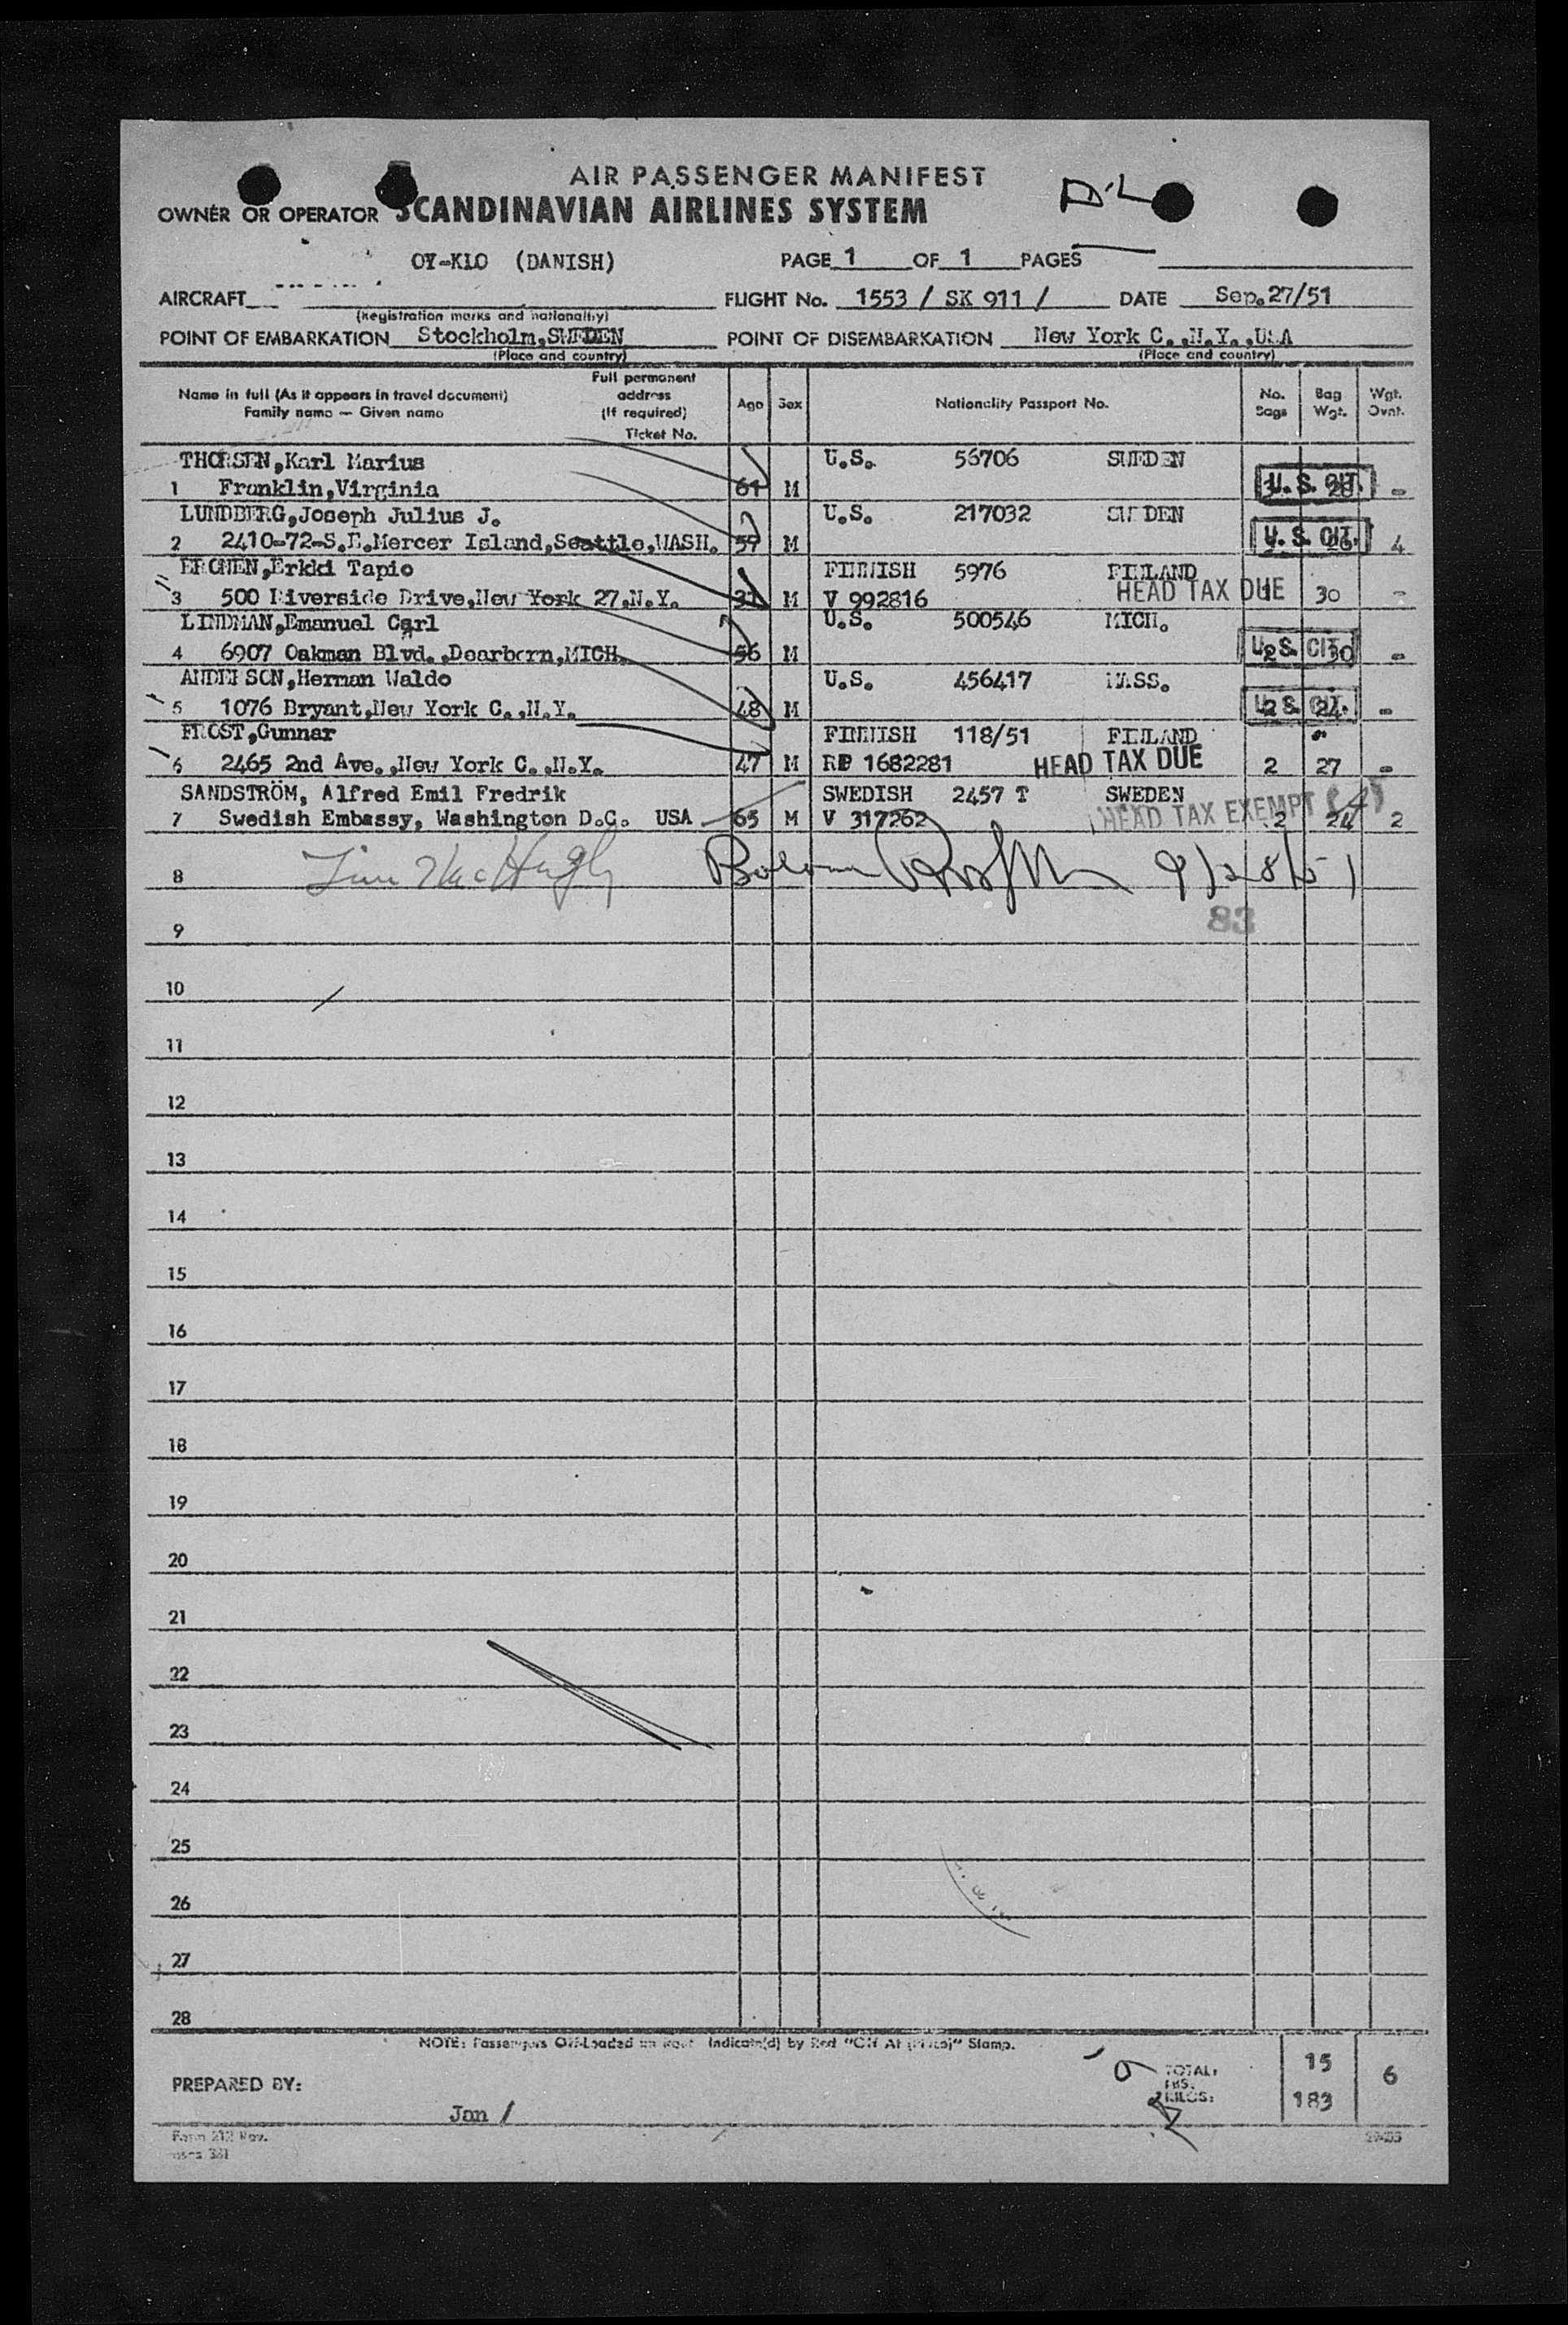 AIR PASSENGER MANIFEST
OWNER OR OPERATOR SCANDINAVIAN AIRLINES SYSTEM
OY-KLO (DANISH) PAGE 1 OF 1 PAGES
AIRCRAFT FLIGHT No. 1553 / SK 911 / DATE Sep.27/51
(Registration marks and nationality)
POINT OF EMBARKATION Stockholm,SWEDEN POINT OF DISEMBARKATION New York C.,N.Y.,USA
(Place and country) (Place and country)
Name in full (As it appears in travel document) Family name — Given name Full permanent address (If required) Ticket No. Age Sex Nationality Passport No. No. Bags Bag Wgt. Wgt. Ovnt.
THORSEN,Karl Marius U.S. 56706 SWEDEN
1 Franklin,Virginia 61 M U.S. CIT. -
LUNDBERG,Joseph Julius J. U.S. 217032 SWEDEN
2 2410-72-S.E.Mercer Island,Seattle,WASH. 57 M U.S. CIT. 4
Erkki Tapio FINNISH 5976 FINLAND
3 500 Riverside Drive,New York 27.N.Y. 31 M V 992816 HEAD TAX DUE 1 30 -
LINDMAN,Emanuel Carl U.S. 500546 MICH.
4 6907 Oakman Blvd.,Dearborn,MICH. 56 M U.S. CIT. 2 30 -
ANDERSON,Herman Waldo U.S. 456417 MASS.
5 1076 Bryant,New York C.,N.Y. 48 M U.S. CIT. 2 24 -
FROST,Gunnar FINNISH 118/51 FINLAND
6 2465 2nd Ave.,New York C.,N.Y. 47 M RP 1682281 HEAD TAX DUE 2 27 -
SANDSTRÖM, Alfred Emil Fredrik SWEDISH 2457 T SWEDEN
7 Swedish Embassy, Washington D.C. USA 65 M V 317262 HEAD TAX EXEMPT 2 24 2
8 9/28/51
83
9
10
11
12
13
14
15
16
17
18
19
20
21
22
23
24
25
26
27
28
NOTE: Passengers Off-Loaded en Route Indicate(d) by Red "Off At (Place)" Stamp.
PREPARED BY: TOTAL: 15 6
KILOS: 183
Jan /
Form 212 Rev.